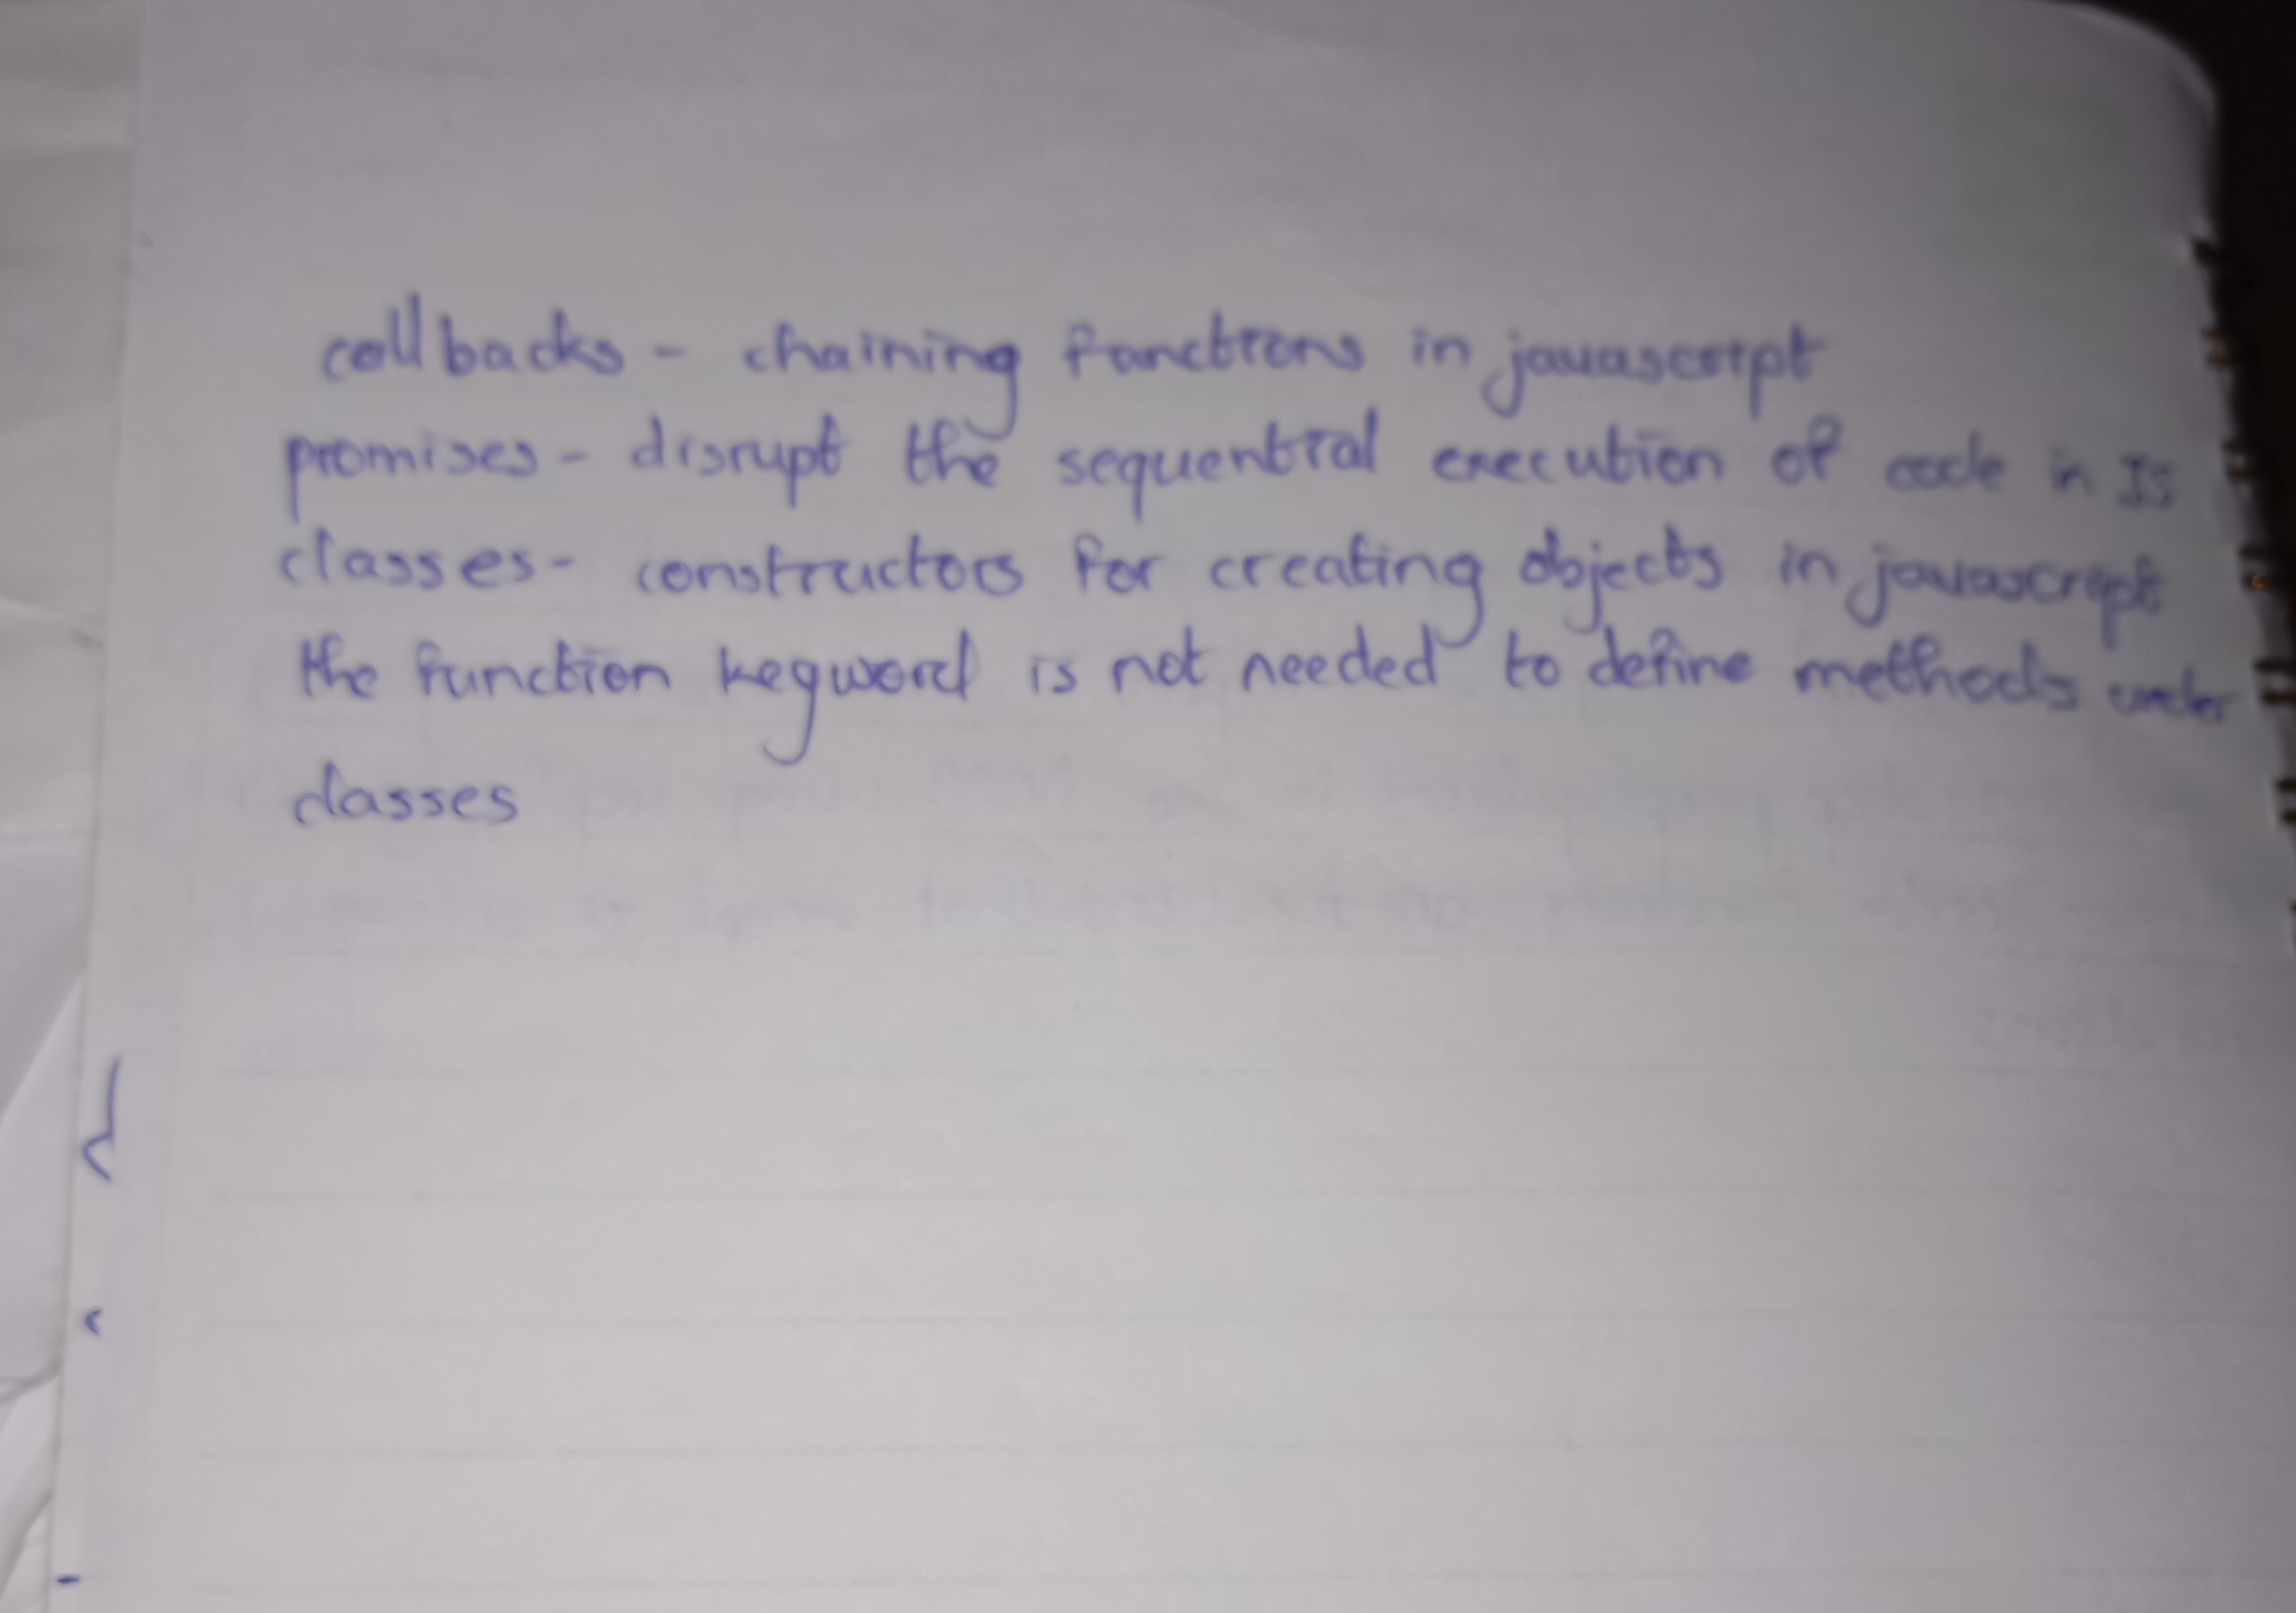 callbacks - chaining functions in javascript
promises - disrupt the sequential execution of code in JS
classes - constructors for creating objects in javascript
the function keyword is not needed to define methods under
classes